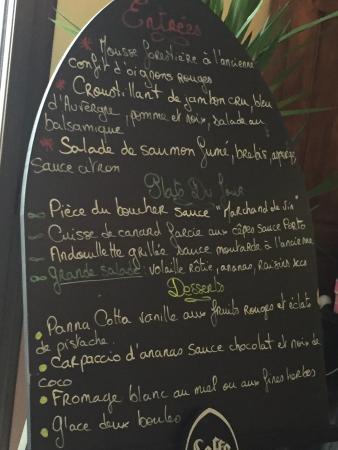 Entrées
* Mousse forestière à l'ancienne
confit d'oignons rouges
* Croustillant de jambon cru, bleu
d'Auvergne, pomme et noix, salade au
balsamique
* Salade de saumon fumé, brebis, asperge
sauce citron
Plats Du Jour
Pièce du boucher sauce "Marchand de vin"
Cuisse de canard farcie aux cèpes sauce Porto
Andouillette grillée sauce moutarde à l'ancienne
Grande salade: volaille rôtie, ananas, raisins secs
Desserts
• Panna Cotta vanille aux fruits rouges et éclats
de pistache.
• Carpaccio d'ananas sauce chocolat et noix de
coco
• Fromage blanc au miel ou aux fines herbes
• Glace deux boules